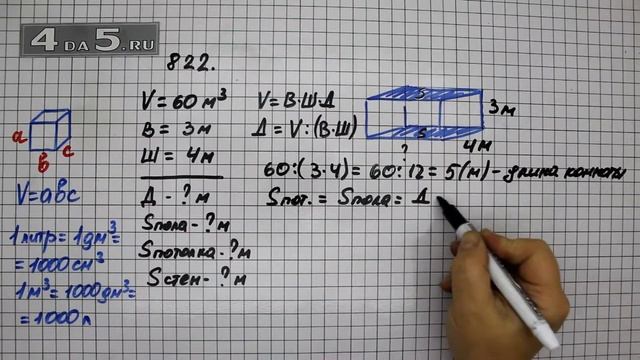 4DA5.RU
822.
a
b
c
V=abc
1 литр = 1 дм³ =
= 1000 см³
1 м³ = 1000 дм³ =
= 1000 л
V = 60 м³
В = 3 м
Ш = 4 м
Д - ? м
Sпола - ? м
Sпотолка - ? м
Sстен - ? м
V = В·Ш·Д
Д = V : (В·Ш)
S
S
3 м
4 м
?
60:(3·4) = 60:12 = 5 (м) - длина комнаты
Sпот. = Sпола = Д